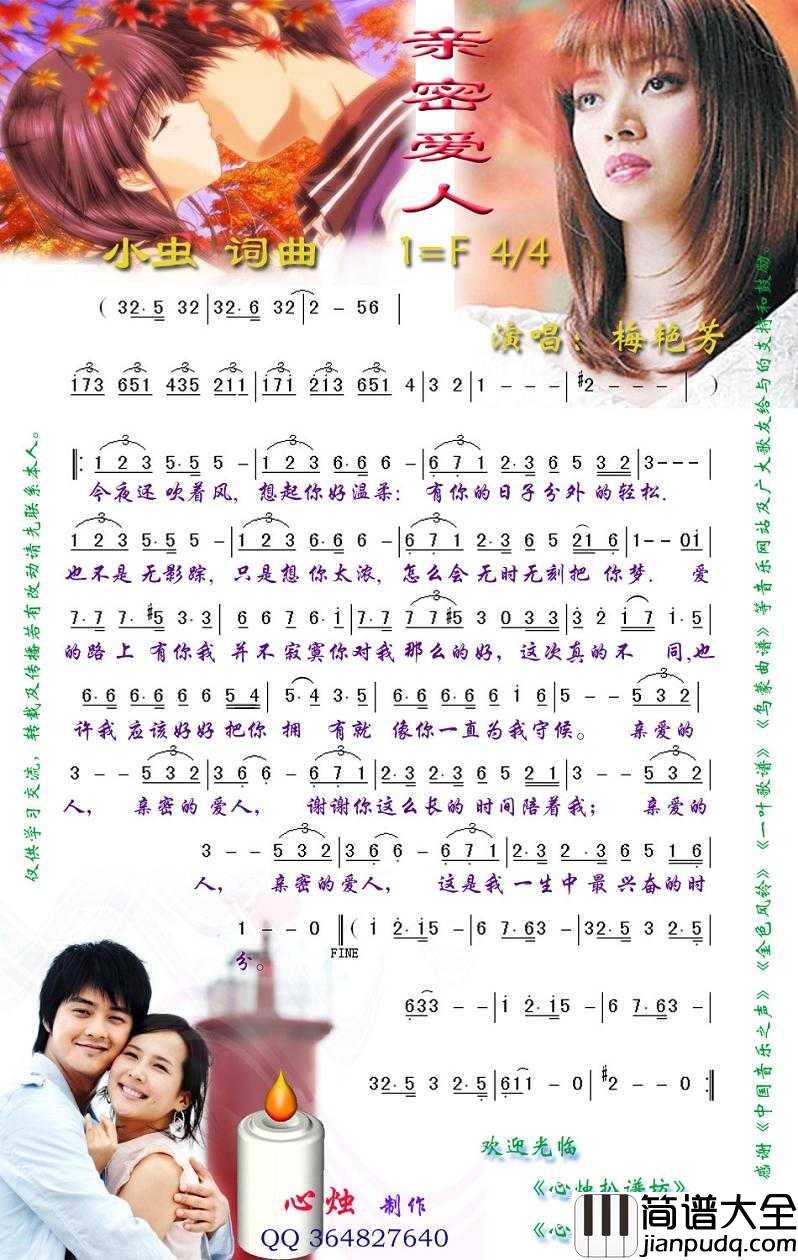 亲密爱人
小虫 词曲 1=F 4/4
演唱：梅艳芳
( 32·5 32 | 32·6 32 | 2 - 56 |
173 651 435 211 | 171 213 651 4 | 3 2 | 1 - - - | #2 - - - | )
‖: 1 2 3 5·5 5 - | 1 2 3 6·6 6 - | 6 7 1 2·3 6 5 32 | 3 - - - |
今夜还吹着风，想起你好温柔：有你的日子分外的轻松.
1 2 3 5·5 5 - | 1 2 3 6·6 6 - | 6 7 1 2·3 6 5 21 6 | 1 - - 01 |
也不是无影踪，只是想你太浓，怎么会无时无刻把你梦. 爱
7·7 7·#5 3·3 | 6 6 7 6·1 | 7·7 7 7 #5 3 0 33 | 3 2 1 7 1·5 |
的路上有你我并不寂寞你对我那么的好，这次真的不同,也
6·6 6 6 6 6 54 | 5 4 3·5 | 6·6 6 6 6 1 6 | 5 - - 5 3 2 |
许我应该好好把你拥有就像你一直为我守候。 亲爱的
3 - - 5 3 2 | 3 6 6 - 6 7 1 | 2·3 2·3 6 5 21 | 3 - - 5 3 2 |
人， 亲密的爱人， 谢谢你这么长的时间陪着我； 亲爱的
3 - - 5 3 2 | 3 6 6 - 6 7 1 | 2·3 2·3 6 5 1 6 |
人， 亲密的爱人， 这是我一生中最兴奋的时
1 - - 0 ‖ ( 1 2·15 - | 6 7·63 - | 32·5 3 2·5 |
分。 FINE
633 - - | 1 2·15 - | 6 7·63 - |
32·5 3 2·5 | 611 - 0 | #2 - - 0 :‖
仅供学习交流，转载及传播若有改动请先联系本人。
感谢《中国音乐之声》《金色风铃》《一叶歌谱》《乌蒙曲谱》等音乐网站及广大歌友给与的支持和鼓励。
欢迎光临
《心烛扒谱坊》
《心
心烛 制作
QQ 364827640
简谱大全
jianpudq.com